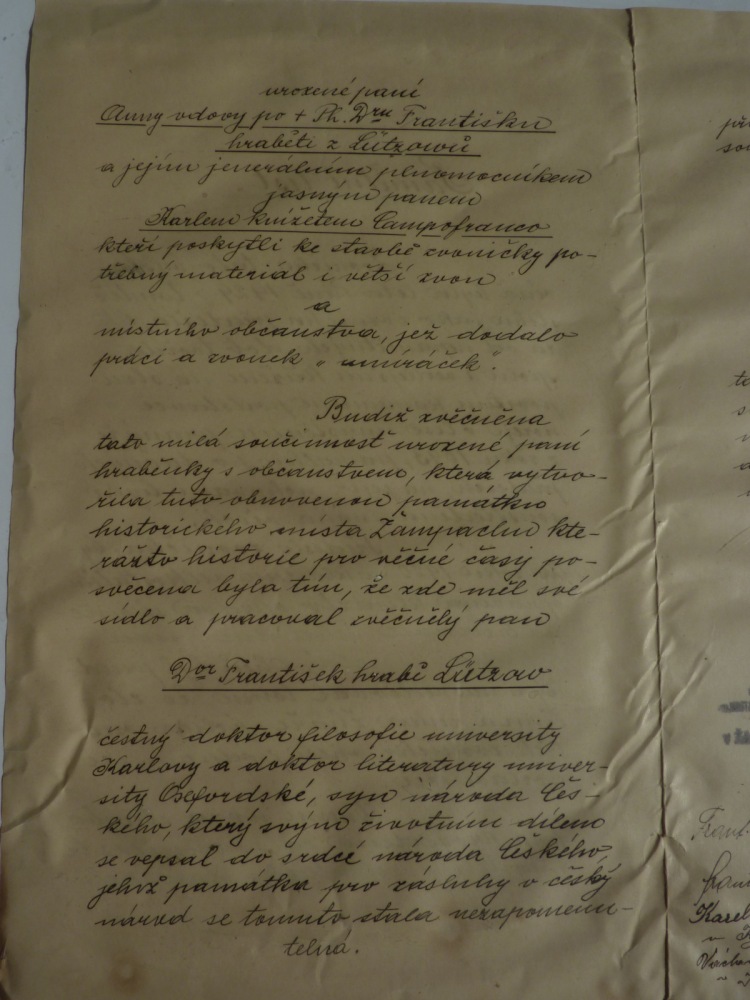 urozené paní
Anny vdovy po + Ph. Dru Františku
hraběti z Lützowů
a jejím jenerálním plnomocníkem
jasným panem
Karlem knížetem Campofranco
kteří poskytli ke stavbě zvoničky po-
třebný materiál i větší zvon
a
místního občanstva, jež dodalo
práci a zvonek „umíráček“.
Budiž zvěčněna
tato milá součinnost urozené paní
hraběnky s občanstvem, která vytvo-
řila tuto obnovenou památku
historického místa Žampachu kte-
rážto historie pro věčné časy po-
svěcena byla tím, že zde měl své
sídlo a pracoval zvěčnělý pan
Dor František hrabě Lützow
čestný doktor filosofie university
Karlovy a doktor literatury univer-
sity Oxfordské, syn národa Čes-
kého, který svým životním dílem
se vepsal do srdcé národa Českého,
jehož památka pro zásluhy o český
národ se tomuto stala nezapomenu-
telná.
př
so
to
s
n
a
Frant.
Karel
Václav